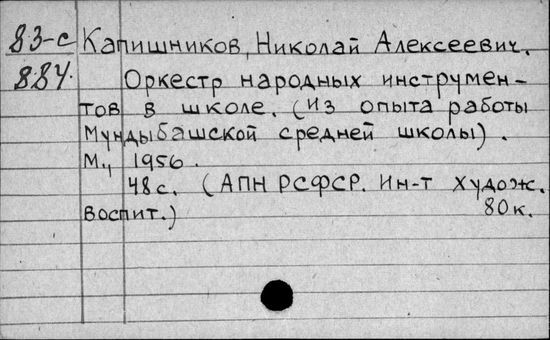 83-с Капишников, Николай Алексеевич.
884. Оркестр народных инструмен-
тов в школе. (Из опыта работы
Мундыбашской средней школы).
М., 1956.
48с. (АПН РСФСР. Ин-т худож.
воспит.) 80к.